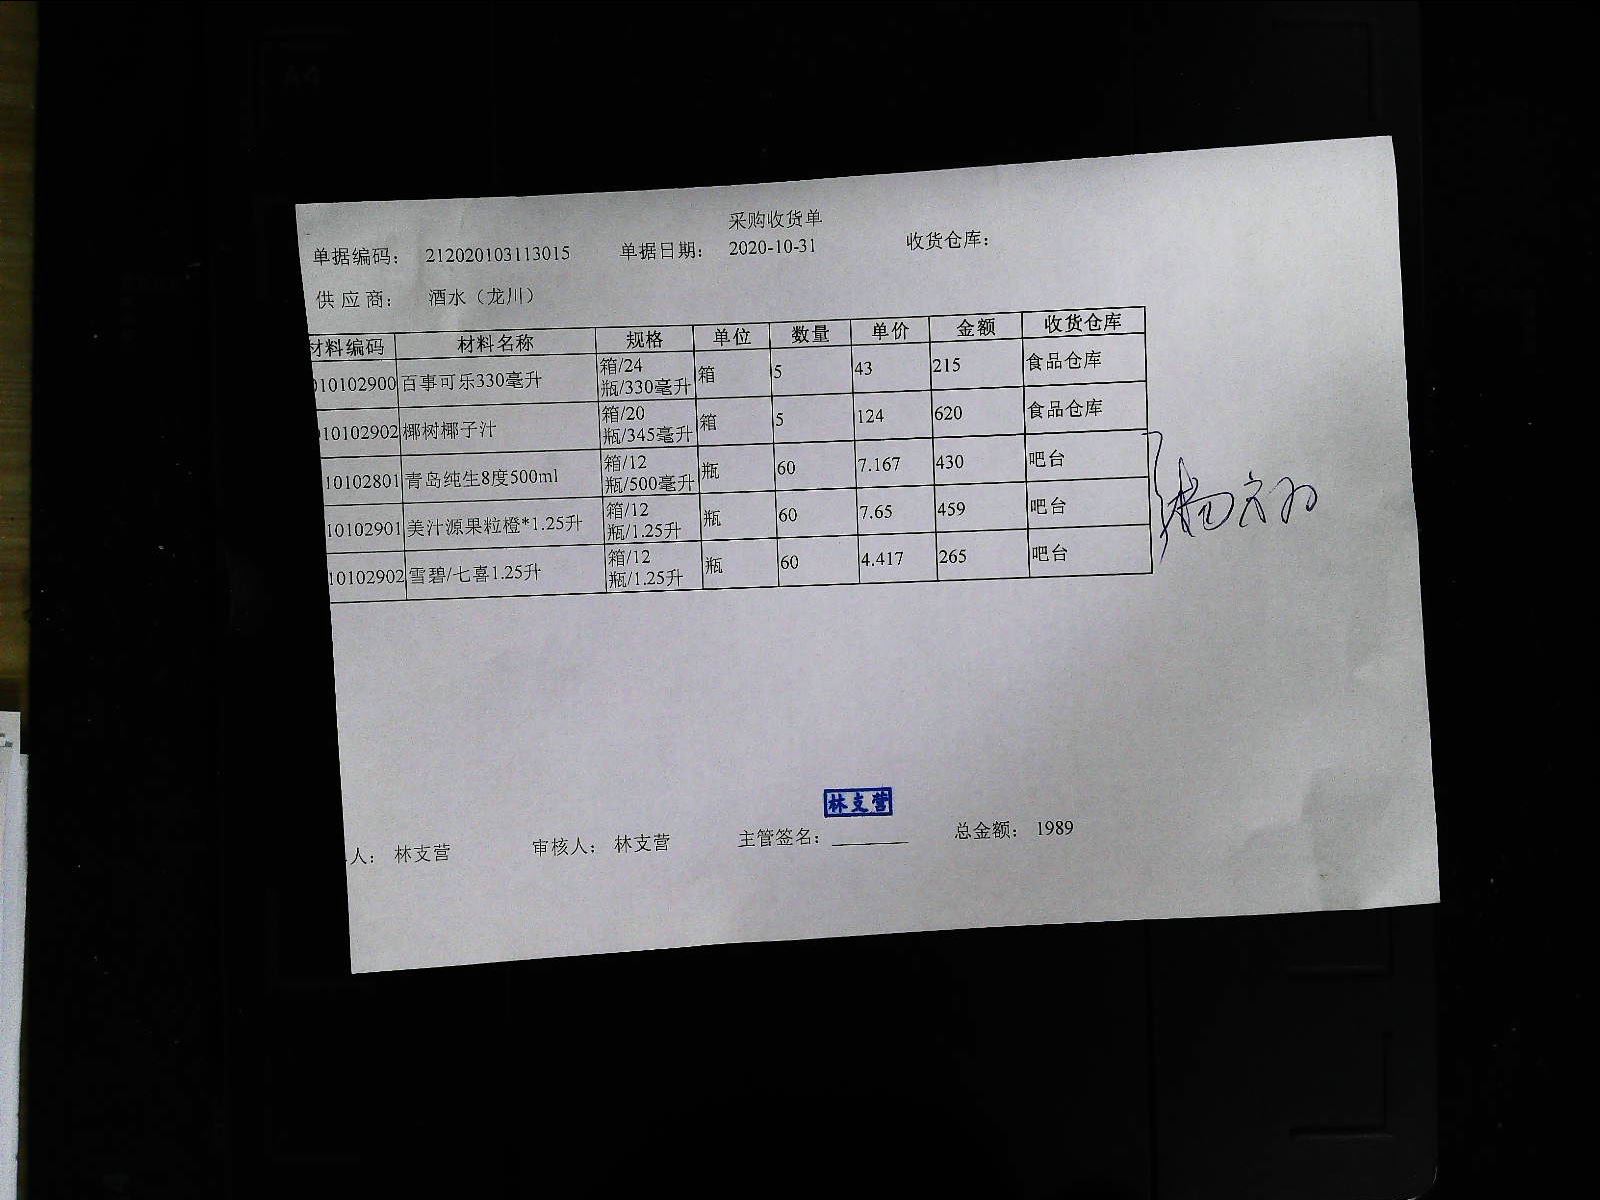 采购收货单
单据编码： 212020103113015 单据日期： 2020-10-31 收货仓库：
供 应 商： 酒水（龙川）
材料编码 材料名称 规格 单位 数量 单价 金额 收货仓库
010102900 百事可乐330毫升 箱/24瓶/330毫升 箱 5 43 215 食品仓库
010102902 椰树椰子汁 箱/20瓶/345毫升 箱 5 124 620 食品仓库
10102801 青岛纯生8度500ml 箱/12瓶/500毫升 瓶 60 7.167 430 吧台
10102901 美汁源果粒橙*1.25升 箱/12瓶/1.25升 瓶 60 7.65 459 吧台
10102902 雪碧/七喜1.25升 箱/12瓶/1.25升 瓶 60 4.417 265 吧台
林支营
人： 林支营 审核人： 林支营 主管签名： 总金额： 1989